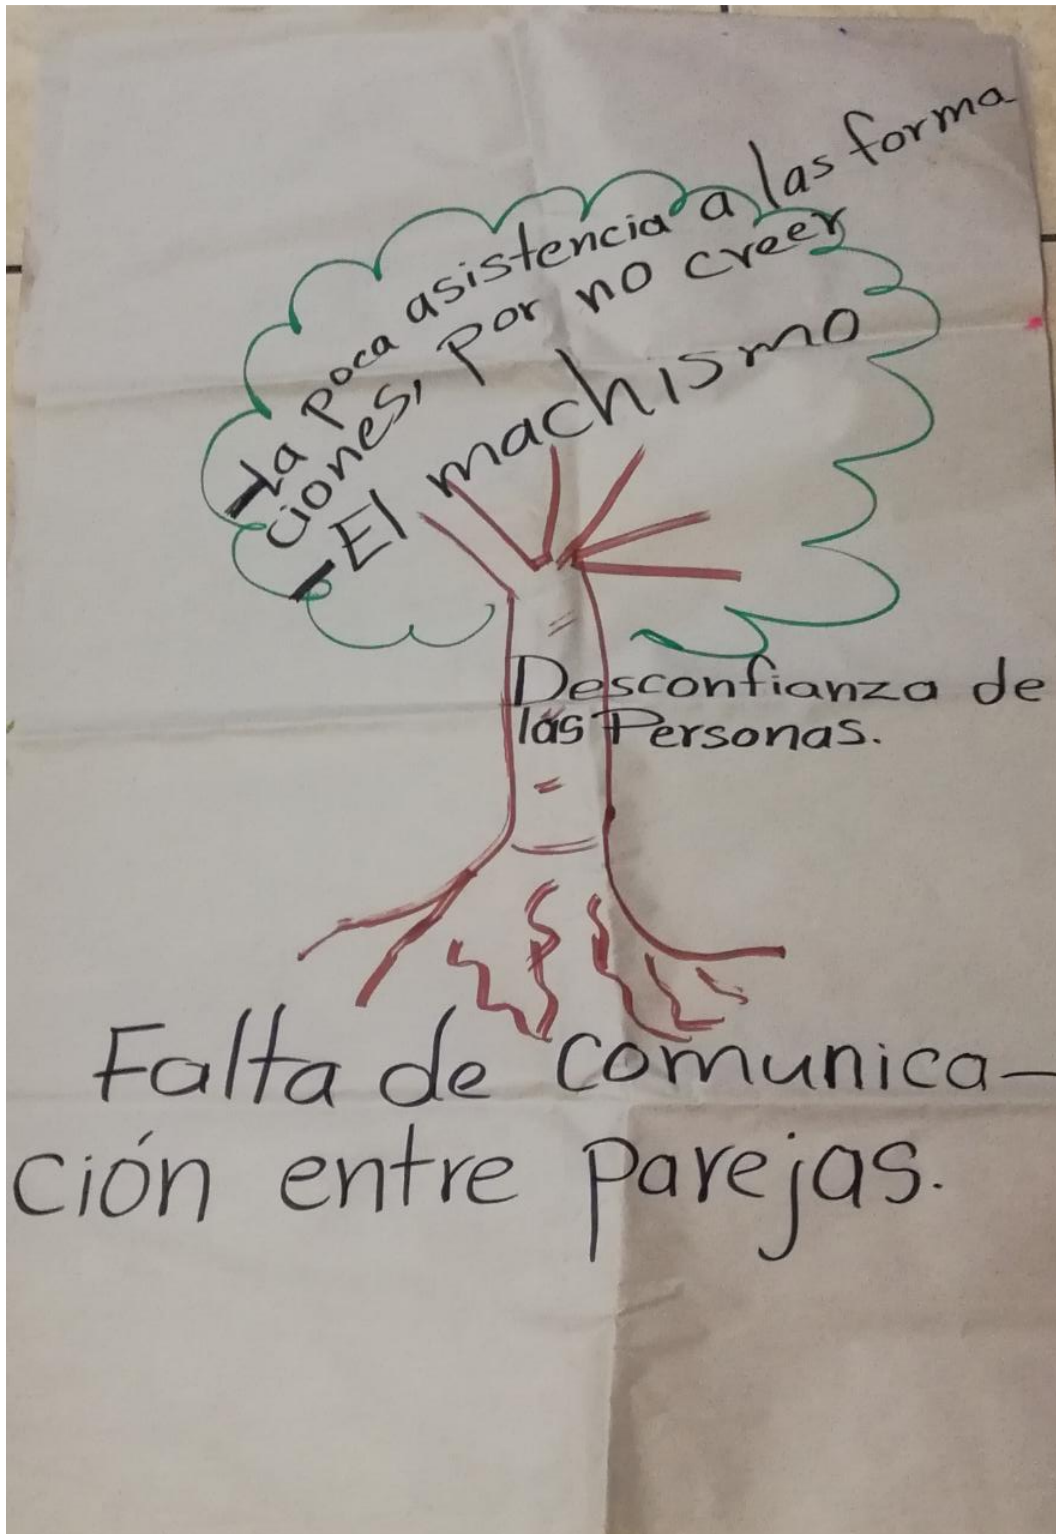 -La poca asistencia a las forma
ciones, por no creer
-El machismo
Desconfianza de
las Personas.
Falta de comunica-
ción entre parejas.